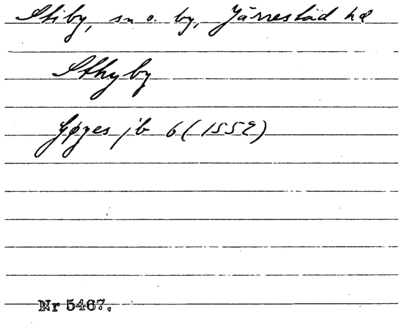 Stiby, sn o. by, Järrestad hd
Sthyby
Gøyes jb 6 (1552)
Nr 5467.